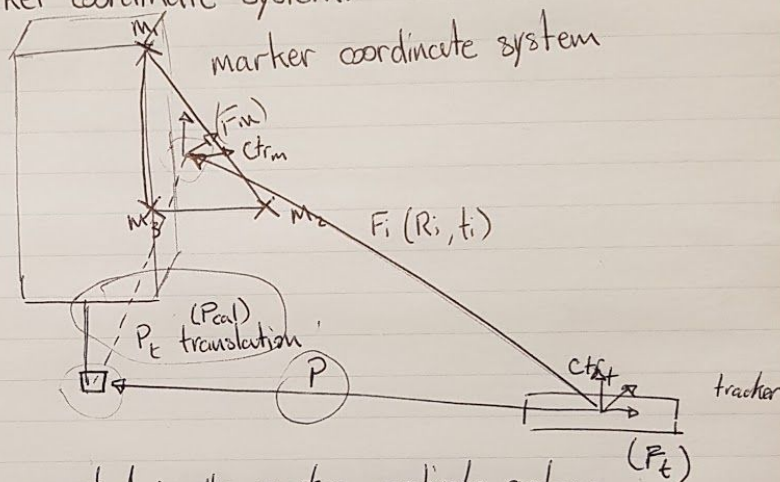 marker coordinate system
M1
(Fm)
Ctrm
M3
M2
Fi (Ri, ti)
(Pcal)
Pt translation
P
Ctrt
tracker
(Ft)